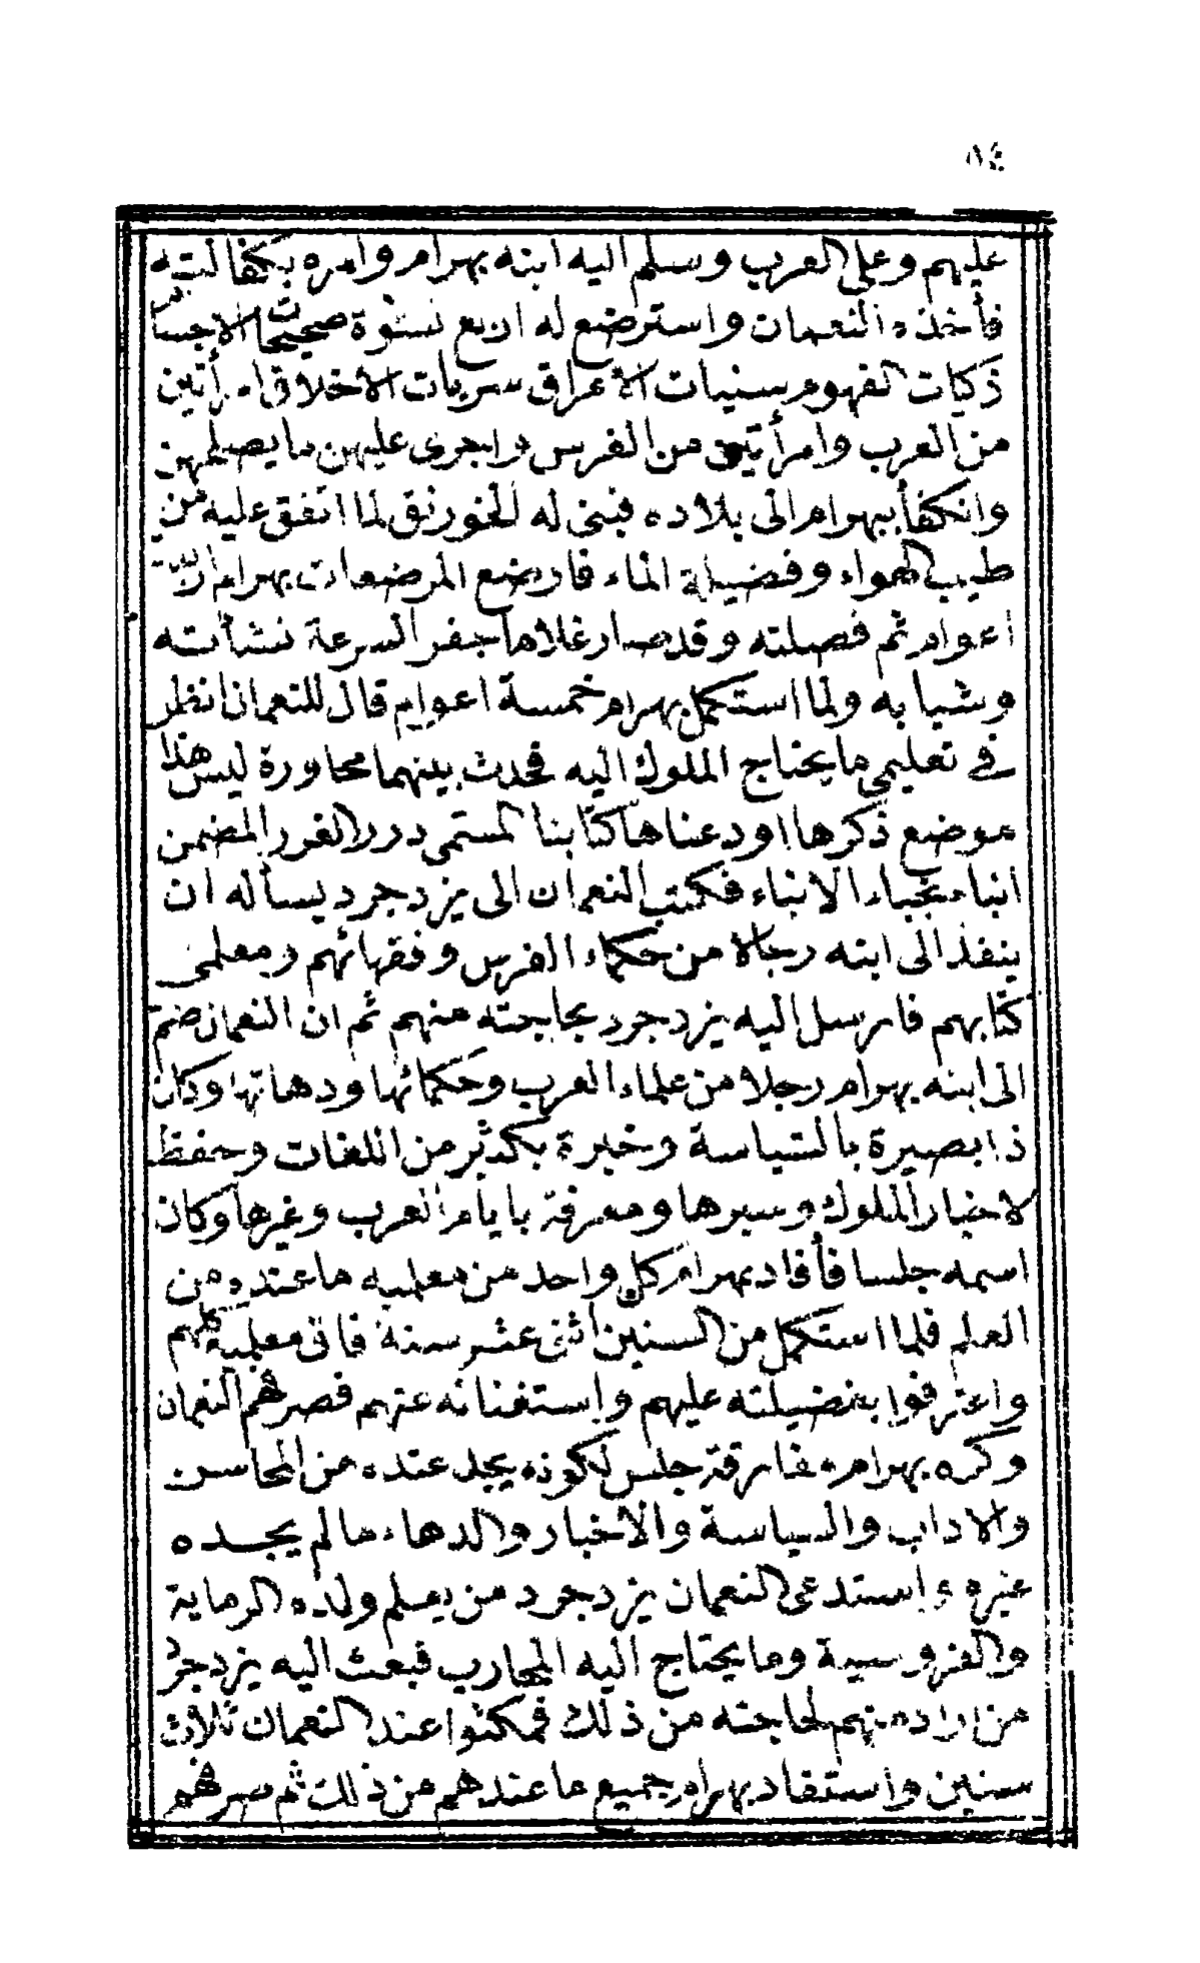 ٥٤
عليهم وعلى العرب وسلم اليه ابنه بهرام وامره بكفالته
فأخذه النعمان واسترضع له اربع نسوة صحيحات الاجسام
ذكيات الفهوم سنيات الاعراق سريات الاخلاق امرأتين
من العرب وامرأتين من الفرس واجرى عليهن ما يصلهن
وانكفأ ببهرام الى بلاده فبنى له الخورنق لما اتفق عليه من
طيب الهواء وفضيلة الماء فارضع المرضعات بهرام ثلاثة
اعوام ثم فصلته وقد صار غلاما جفر السرعة نشأته
وشبابه ولما استكمل بهرام خمسة اعوام قال للنعمان انظر
في تعليمي ما يحتاج الملوك اليه فحدث بينهما محاورة ليس هذا
موضع ذكرها اودعناها كتابنا المسمى درر الغرر المضمن
انباء نجباء الابناء فكتب النعمان الى يزدجرد يسأله ان
ينفذ الى ابنه رجالا من حكماء الفرس وفقهائهم ومعلمى
كتابهم فارسل اليه يزدجرد بحاجته منهم ثم ان النعمان ضم
الى ابنه بهرام رجلا من علماء العرب وحكمائها ودهاتها وكان
ذا بصيرة بالسياسة وخبرة بكثير من اللغات وحفظ
لاخبار الملوك وسيرها ومعرفة بايام العرب وغيرها وكان
اسمه جلسا فأفاد بهرام كل واحد من معلميه ما عنده من
العلم فلما استكمل من السنين اثنى عشر سنة فاق معلميه كلهم
واعترفوا بفضيلته عليهم واستغنائه عنهم فصرفهم النعمان
وكره بهرام مفارقة جلس لكونه يجد عنده من المحاسن
والاداب والسياسة والاخبار والدهاء ما لم يجده
عند غيره واستدعى النعمان يزدجرد من يعلم ولده الرماية
والفروسية وما يحتاج اليه المحارب فبعث اليه يزدجرد
من اراده منهم لحاجته من ذلك فمكثوا عند النعمان ثلاث
سنين واستفاد بهرام جميع ما عندهم من ذلك ثم صرفهم